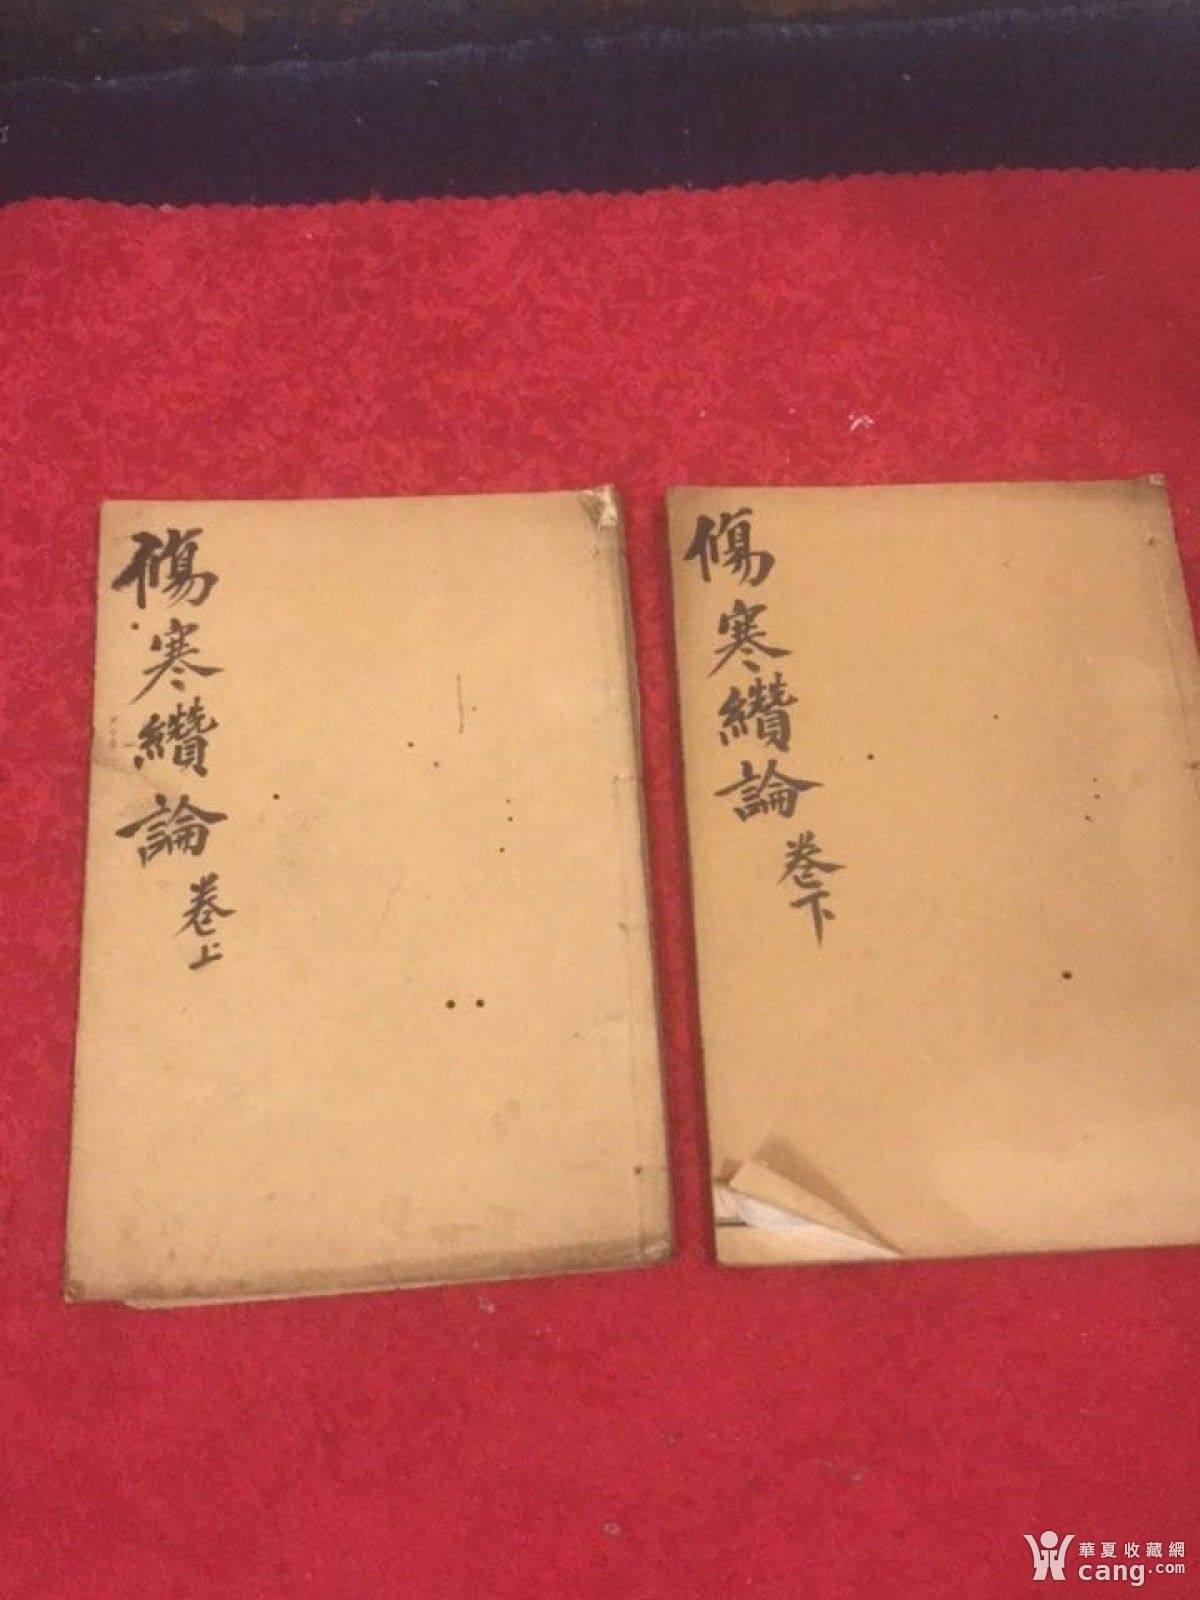 傷寒纘論
卷上
傷寒纘論
卷下
華夏收藏網
cang.com